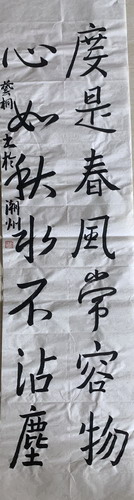 度是春風常容物
心如秋水不沾塵
藝桐書於潮州